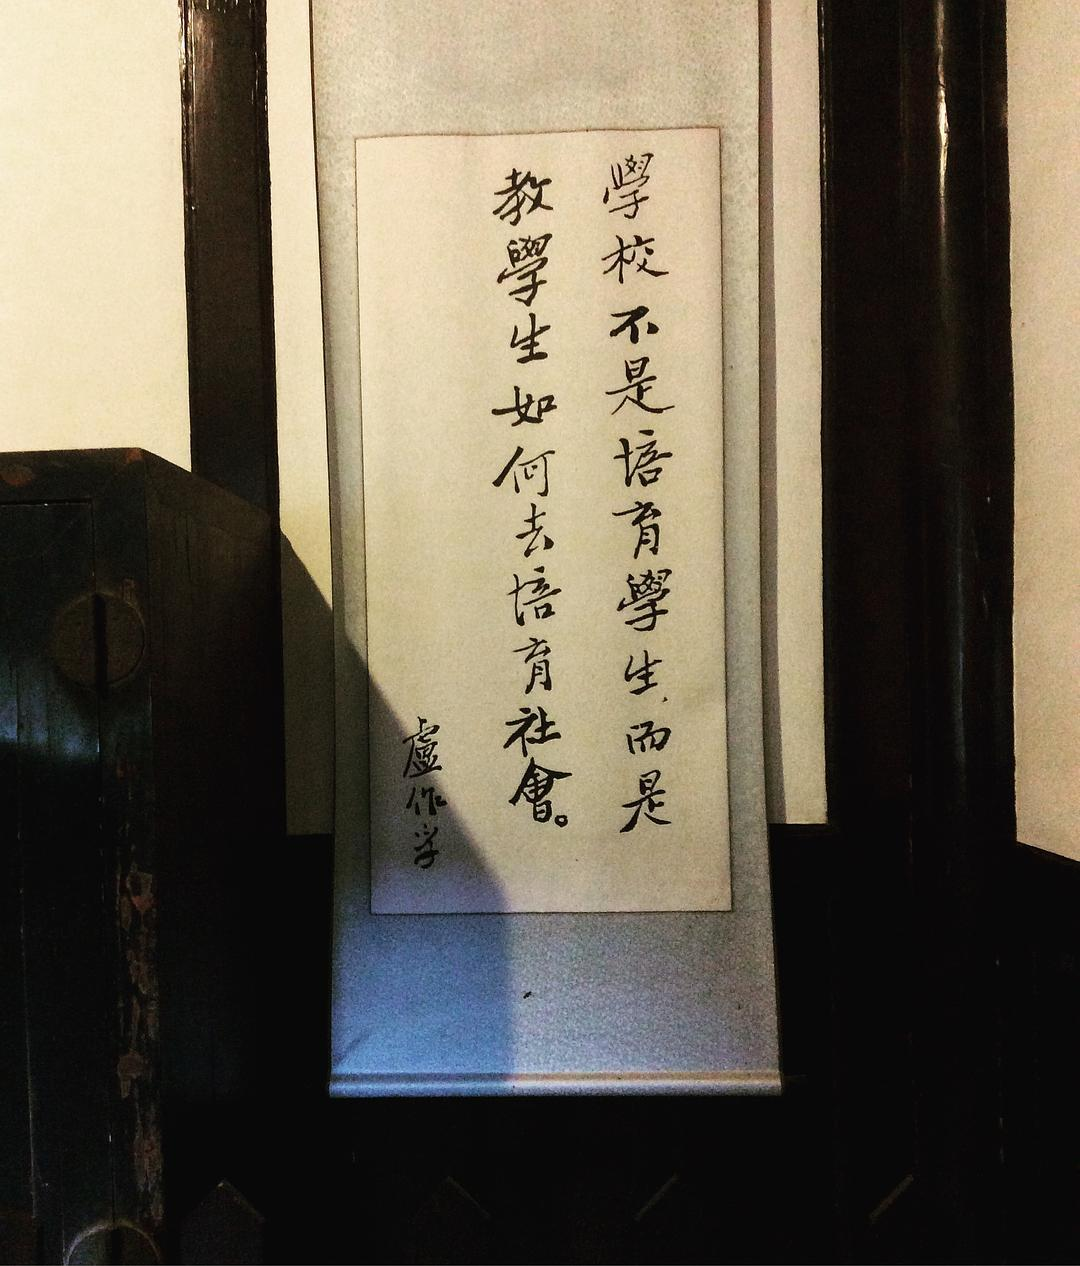 學校不是培育學生、而是
教學生如何去培育社會。
盧作孚